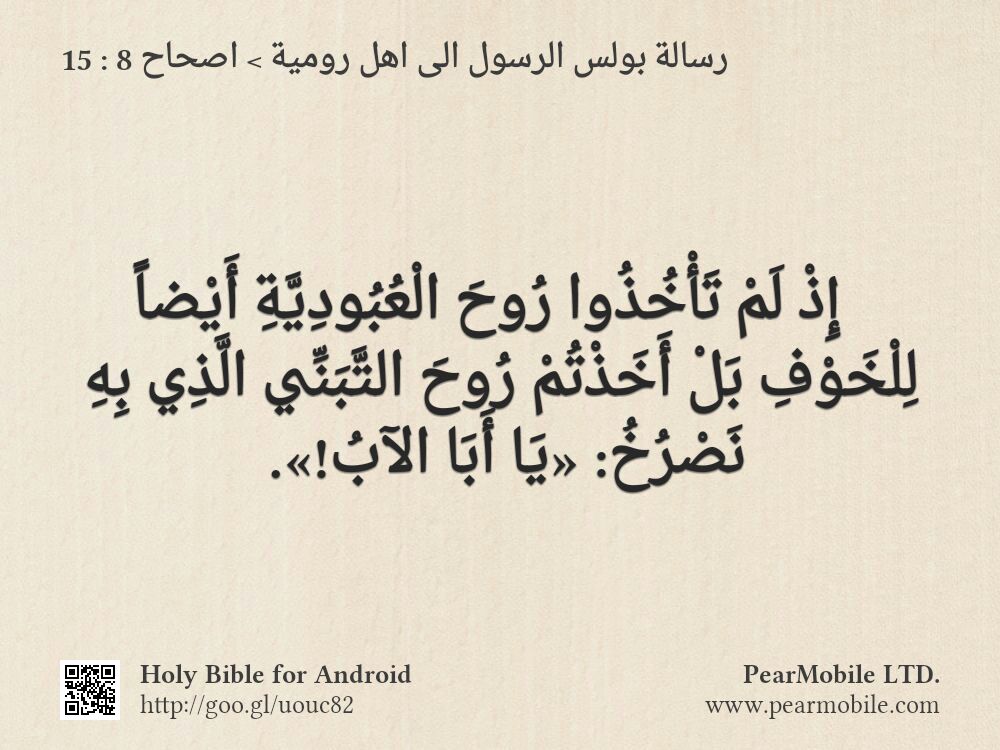 رسالة بولس الرسول الى اهل رومية > اصحاح 8 : 15
إِذْ لَمْ تَأْخُذُوا رُوحَ الْعُبُودِيَّةِ أَيْضاً
لِلْخَوْفِ بَلْ أَخَذْتُمْ رُوحَ التَّبَنِّي الَّذِي بِهِ
نَصْرُخُ: «يَا أَبَا الآبُ!».
Holy Bible for Android
http://goo.gl/uouc82
PearMobile LTD.
www.pearmobile.com